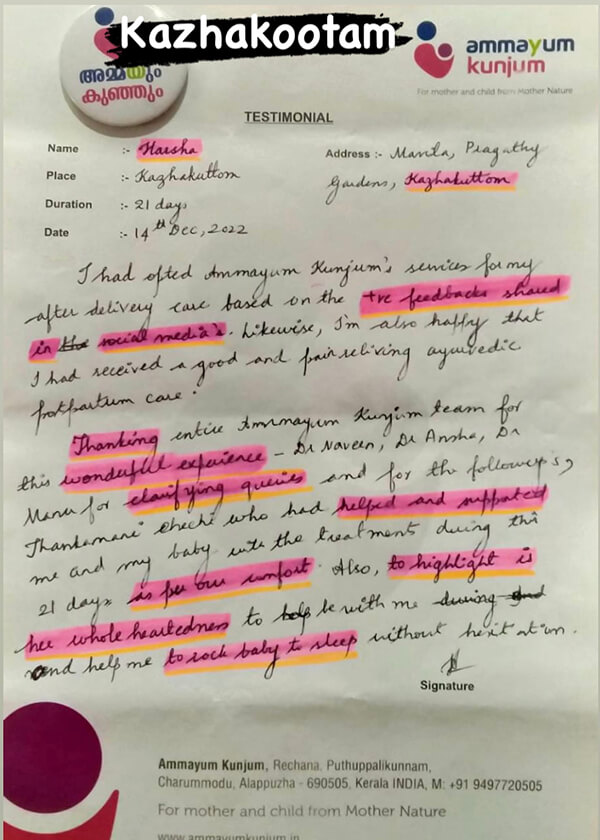 Kazhakootam
അമ്മയും
കുഞ്ഞും
ammayum
kunjum
For mother and child from Mother Nature
TESTIMONIAL
Name :- Harsha
Address :- Manila, Pragathy
Gardens, Kazhakuttom
Place :- Kazhakuttom
Duration :- 21 days
Date :- 14th Dec, 2022
I had opted Ammayum Kunjum's services for my
after delivery care based on the +ve feedbacks shared
in the social media's. Likewise, I'm also happy that
I had received a good and pain reliving ayurvedic
postpartum care.
Thanking entire Ammayum Kunjum team for
this wonderful experience - Dr Naveen, Dr Ansha, Dr
Manu for clarifying queries and for the followup's,
Thankamani chechi who had helped and supported
me and my baby with the treatment during this
21 days as per our comfort. Also, to highlight is
her whole heartedness to help be with me during and
and help me to rock baby to sleep without hesitation.
Signature
Ammayum Kunjum, Rechana, Puthuppalikunnam,
Charummodu, Alappuzha - 690505, Kerala INDIA, M: +91 9497720505
For mother and child from Mother Nature
www.ammayumkunjum.in